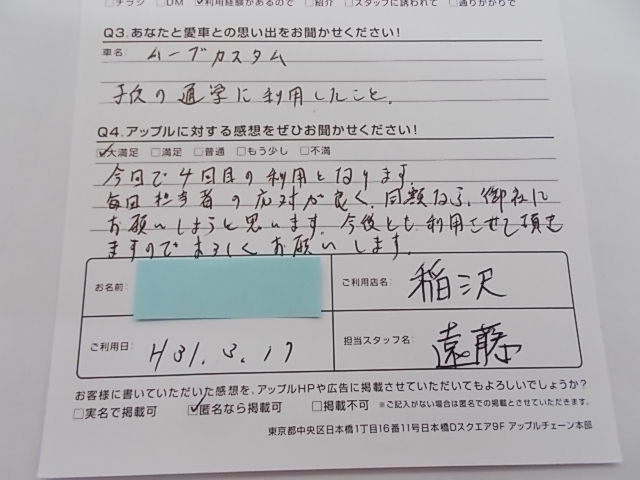 □チラシ □DM ☑利用経験があるので □紹介 □スタッフに誘われて □通りがかりで
Q3.あなたと愛車との思い出をお聞かせください!
車名 ムーブカスタム
子供の通学に利用したこと.
Q4.アップルに対する感想をぜひお聞かせください!
☑大満足 □満足 □普通 □もう少し □不満
今回で4回目の利用となります.
毎回担当者の応対が良く、同額なら、御社に
お願いしようと思います. 今後とも利用させて頂き
ますのでよろしくお願いします.
お名前
ご利用店名 稲沢
ご利用日 H31.3.17
担当スタッフ名 遠藤
お客様に書いていただいた感想を、アップルHPや広告に掲載させていただいてもよろしいでしょうか?
□実名で掲載可 ☑匿名なら掲載可 □掲載不可 ※ご記入がない場合は匿名での掲載とさせていただきます。
東京都中央区日本橋1丁目16番11号日本橋Dスクエア9F アップルチェーン本部